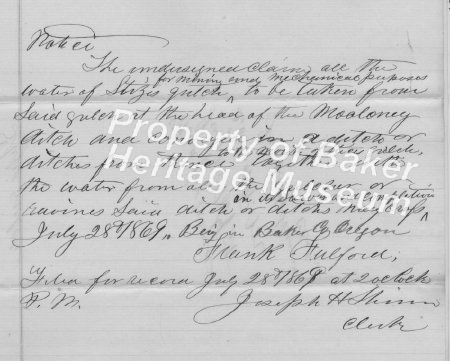 Notice
The undersigned claim all the
for mining and mechanical purposes
water of gulch to be taken from
Said gulch at the head of the Mooloney
ditch and in a ditch or
ditches from thence together with
the water from all the or
ravines Said ditch or ditches may
July 28th 1869. Being in Baker Co Oregon
Frank Fulford,
Filed for record July 28th 1869 at 2 oclock
P.M. Joseph H Shinn
Clerk
Property of Baker
Heritage Museum